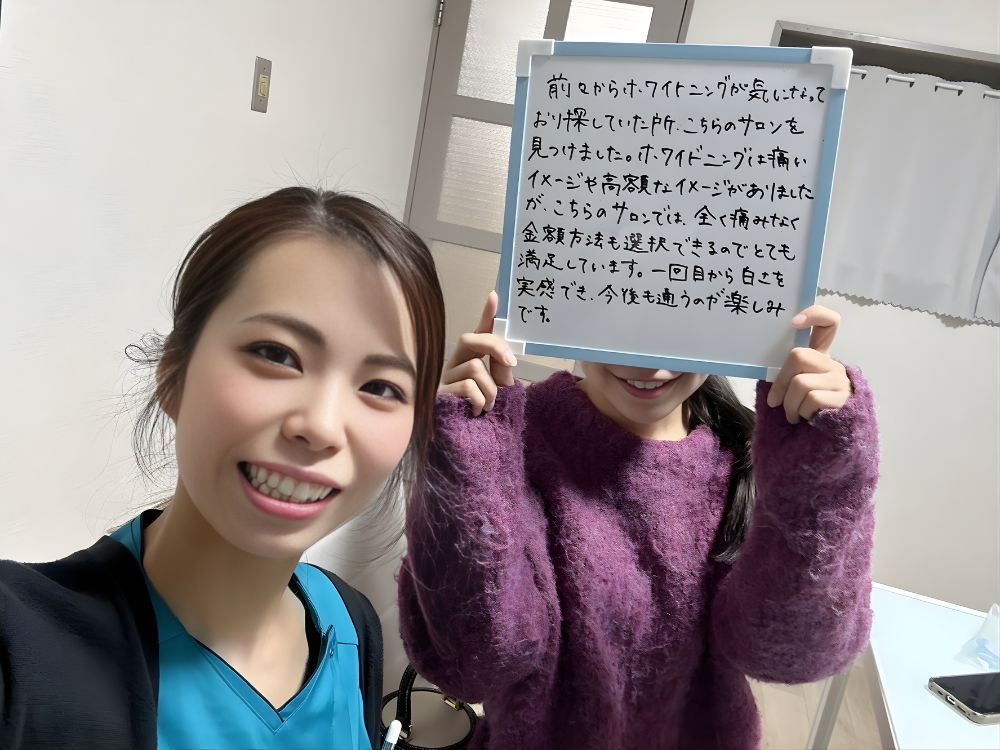 前々からホワイトニングが気になって
おり探していた所、こちらのサロンを
見つけました。ホワイトニングは痛い
イメージや高額なイメージがありました
が、こちらのサロンでは、全く痛みなく
金額方法も選択できるのでとても
満足しています。一回目から白さを
実感でき、今後も通うのが楽しみ
です。